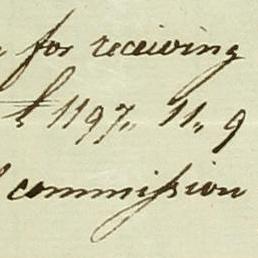 for receiving
£1197,, 11,, 9
commission